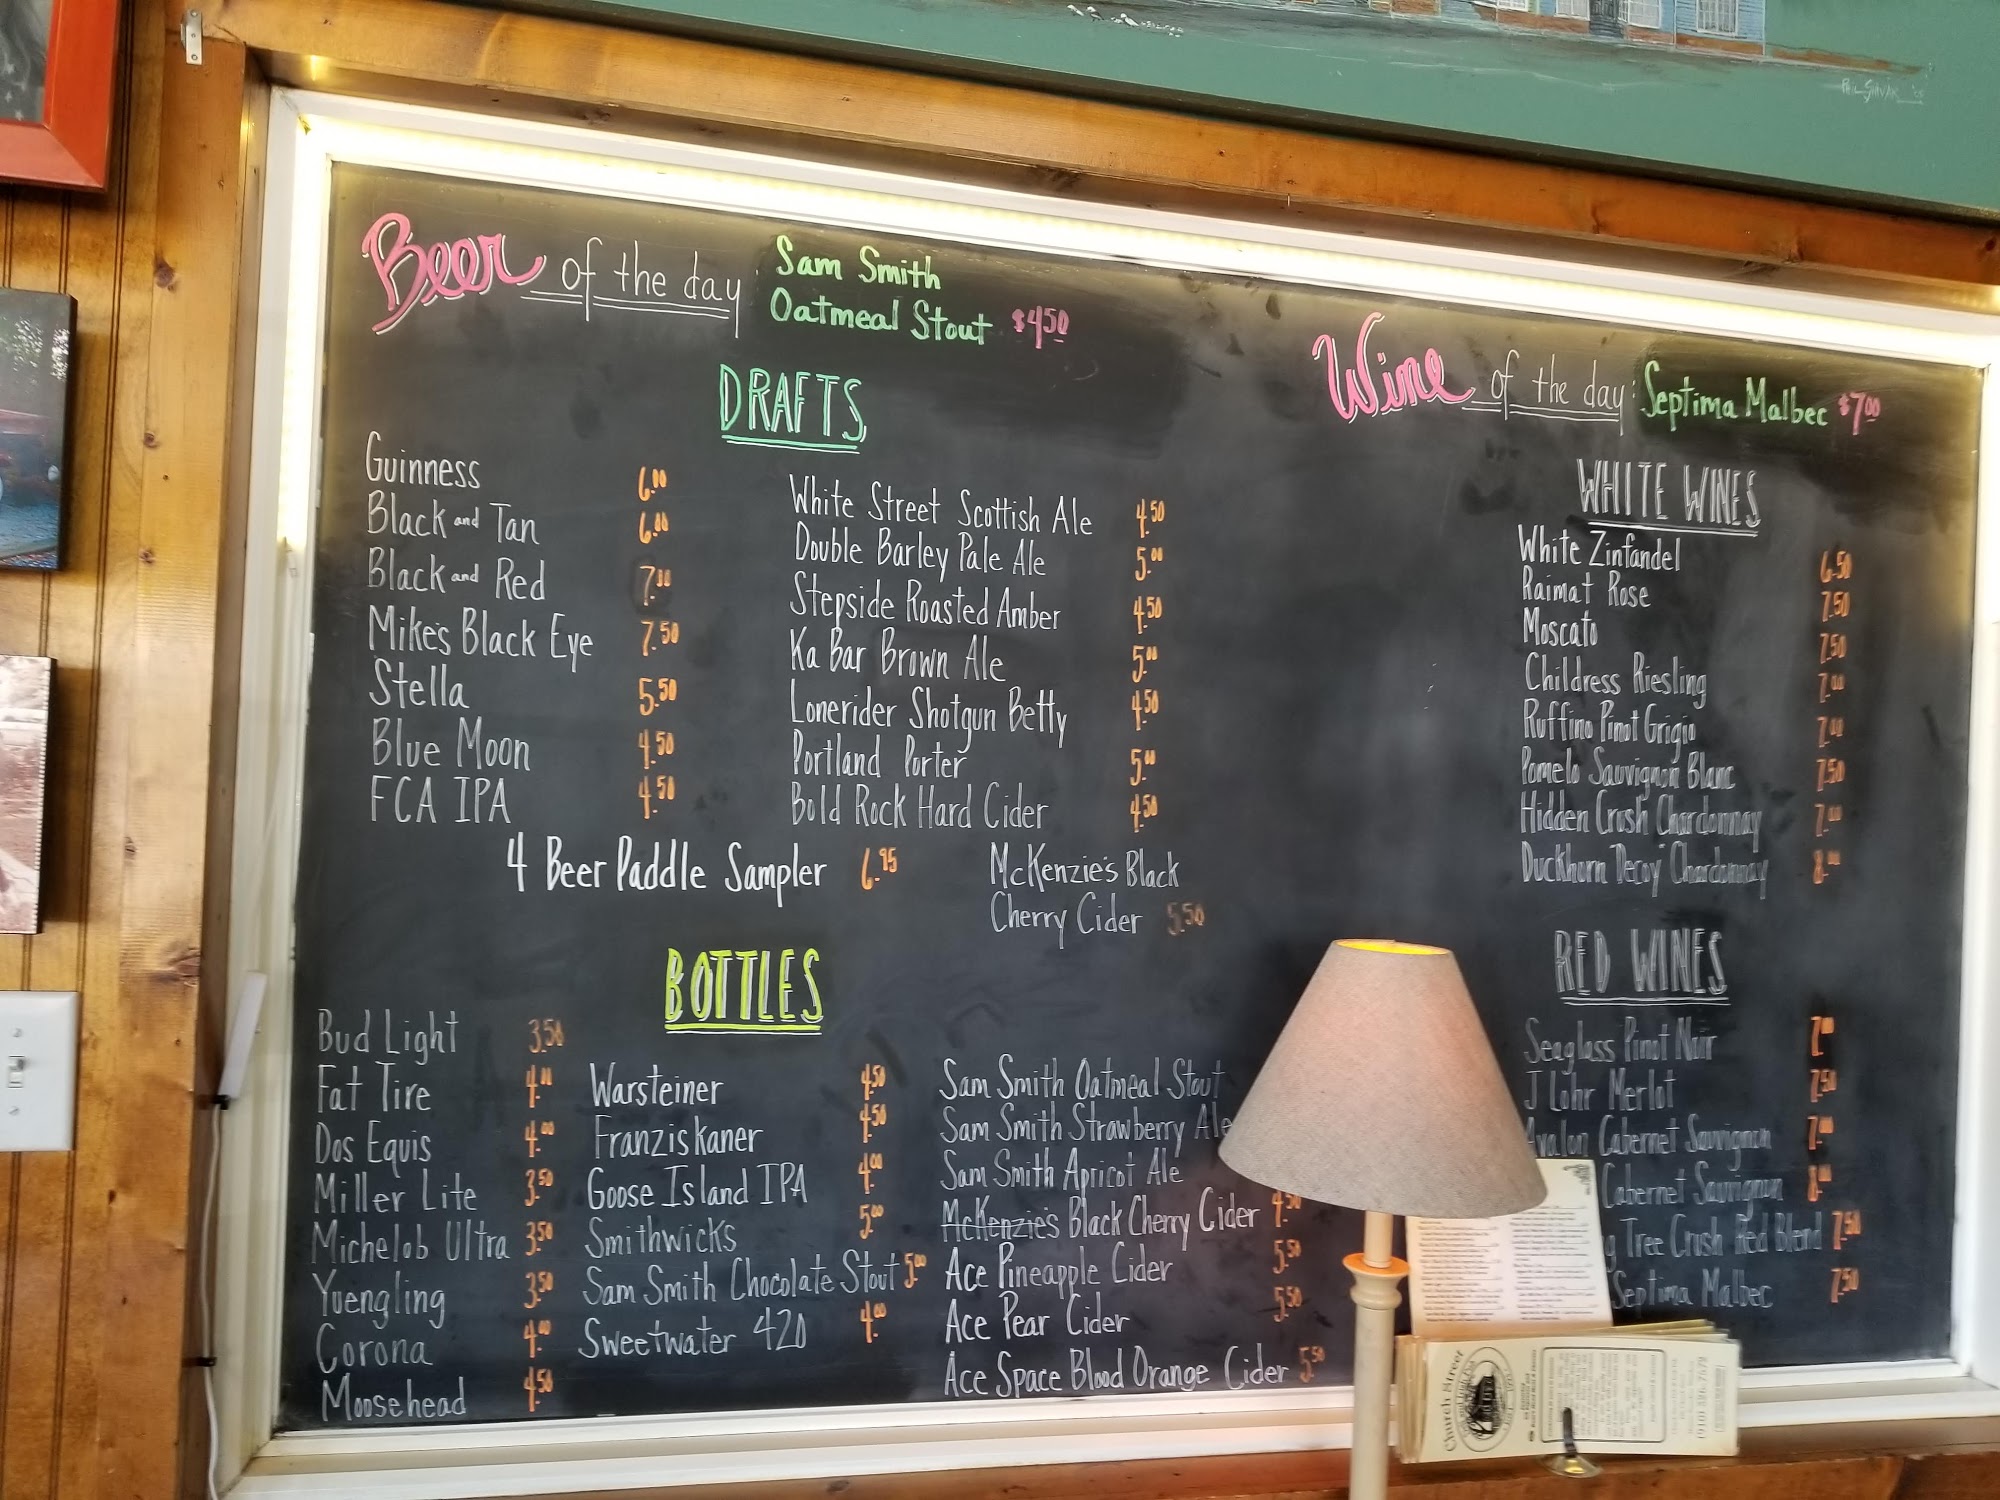 Beer of the day: Sam Smith
Oatmeal Stout $4.50
DRAFTS
Guinness 6.00
Black and Tan 6.00
Black and Red 7.00
Mike's Black Eye 7.50
Stella 5.50
Blue Moon 4.50
FCA IPA 4.50
White Street Scottish Ale 4.50
Double Barley Pale Ale 5.00
Stepside Roasted Amber 4.50
Ka Bar Brown Ale 5.00
Lonerider Shotgun Betty 4.50
Portland Porter 5.00
Bold Rock Hard Cider 4.50
4 Beer Paddle Sampler 6.95
McKenzie's Black
Cherry Cider 5.50
BOTTLES
Bud Light 3.50
Fat Tire 4.00
Dos Equis 4.00
Miller Lite 3.50
Michelob Ultra 3.50
Yuengling 3.50
Corona 4.00
Moosehead 4.50
Warsteiner 4.50
Franziskaner 4.50
Goose Island IPA 4.00
Smithwicks 5.00
Sam Smith Chocolate Stout 5.00
Sweetwater 420 4.00
Sam Smith Oatmeal Stout
Sam Smith Strawberry Ale
Sam Smith Apricot Ale
McKenzie's Black Cherry Cider 4.50
Ace Pineapple Cider 5.50
Ace Pear Cider 5.50
Ace Space Blood Orange Cider 5.50
Wine of the day: Septima Malbec $7.00
WHITE WINES
White Zinfandel 6.50
Raimat Rose 7.50
Moscato 7.50
Childress Riesling 7.00
Ruffino Pinot Grigio 7.00
Pomelo Sauvignon Blanc 7.50
Hidden Crush Chardonnay 7.00
Duckhorn "Decoy" Chardonnay 8.00
RED WINES
Seaglass Pinot Noir 7.00
J Lohr Merlot 7.50
Avalon Cabernet Sauvignon 7.00
Cabernet Sauvignon 8.00
g Tree Crush Red Blend 7.50
Septima Malbec 7.50
Church Street